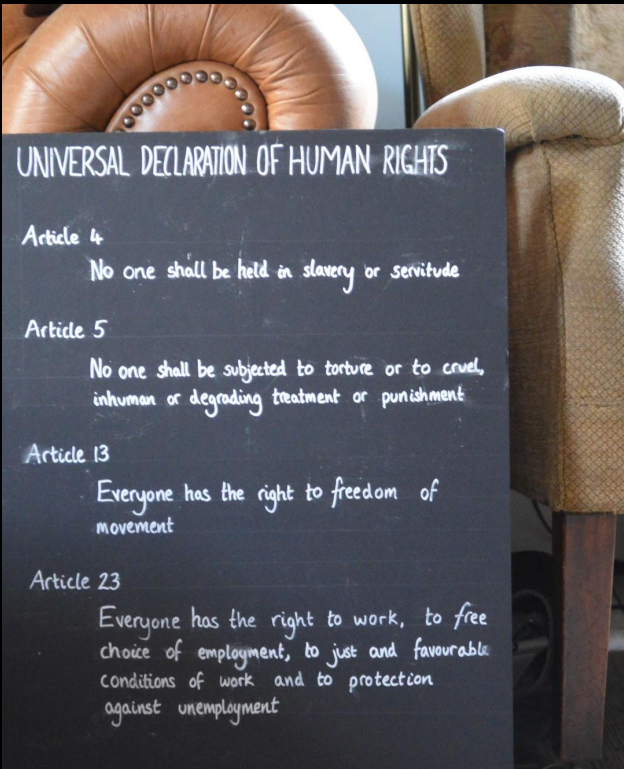 UNIVERSAL DECLARATION OF HUMAN RIGHTS
Article 4
No one shall be held in slavery or servitude
Article 5
No one shall be subjected to torture or to cruel,
inhuman or degrading treatment or punishment
Article 13
Everyone has the right to freedom of
movement
Article 23
Everyone has the right to work, to free
choice of employment, to just and favourable
conditions of work and to protection
against unemployment